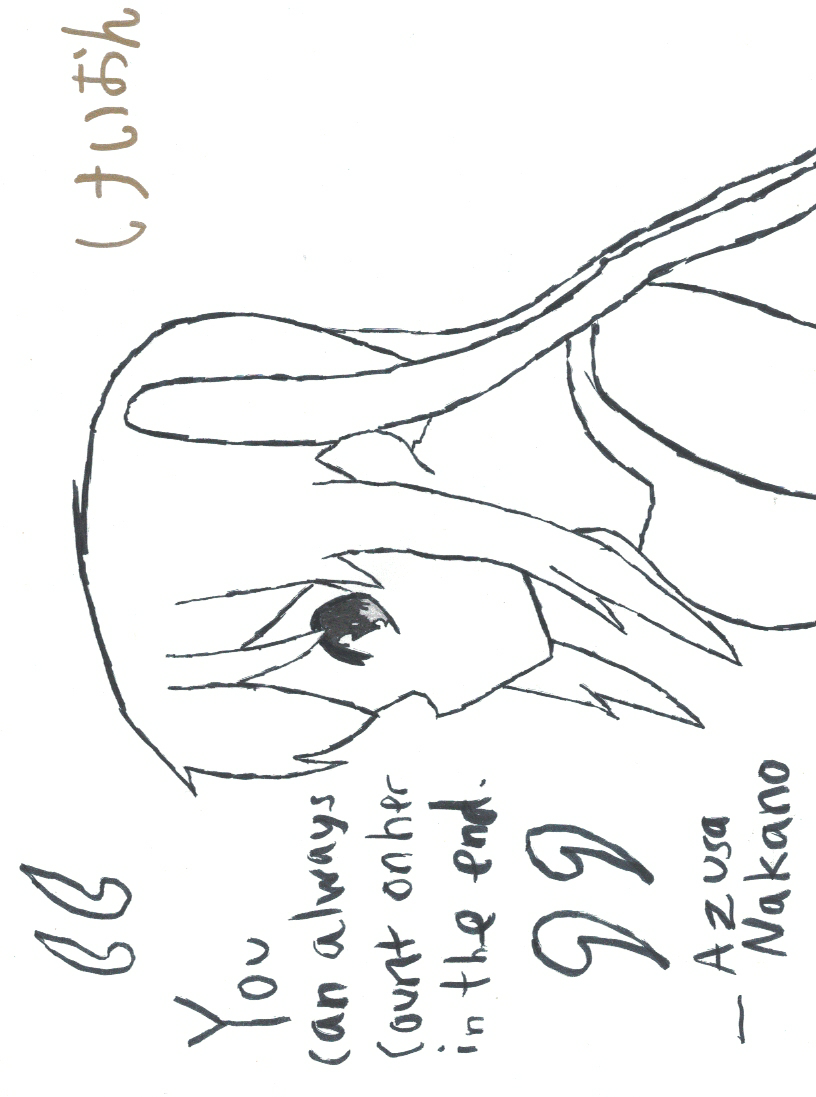 “
You
can always
count on her
in the end.
”
— Azusa
Nakano
けいおん